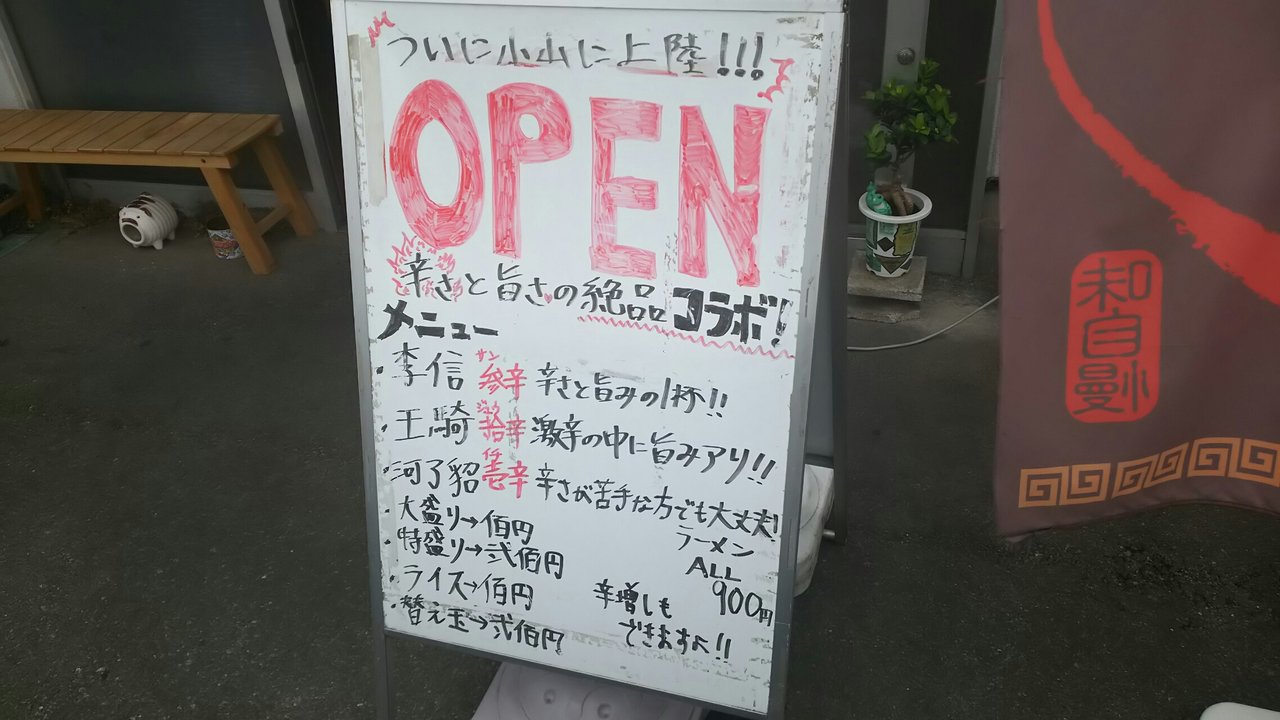 ついに小山に上陸!!!
OPEN
辛さと旨さの絶品コラボ!
メニュー
・李信 参辛 サン 辛さと旨みの1杯!!
・王騎 拾辛 ジュウ 激辛の中に旨みアリ!!
・河了貂 壱辛 イチ 辛さが苦手な方でも大丈夫!
・大盛り→佰円
・特盛り→弐佰円
・ライス→佰円
・替え玉→弐佰円
ラーメン
ALL
900円
辛増しも
できますよ!!
自
慢